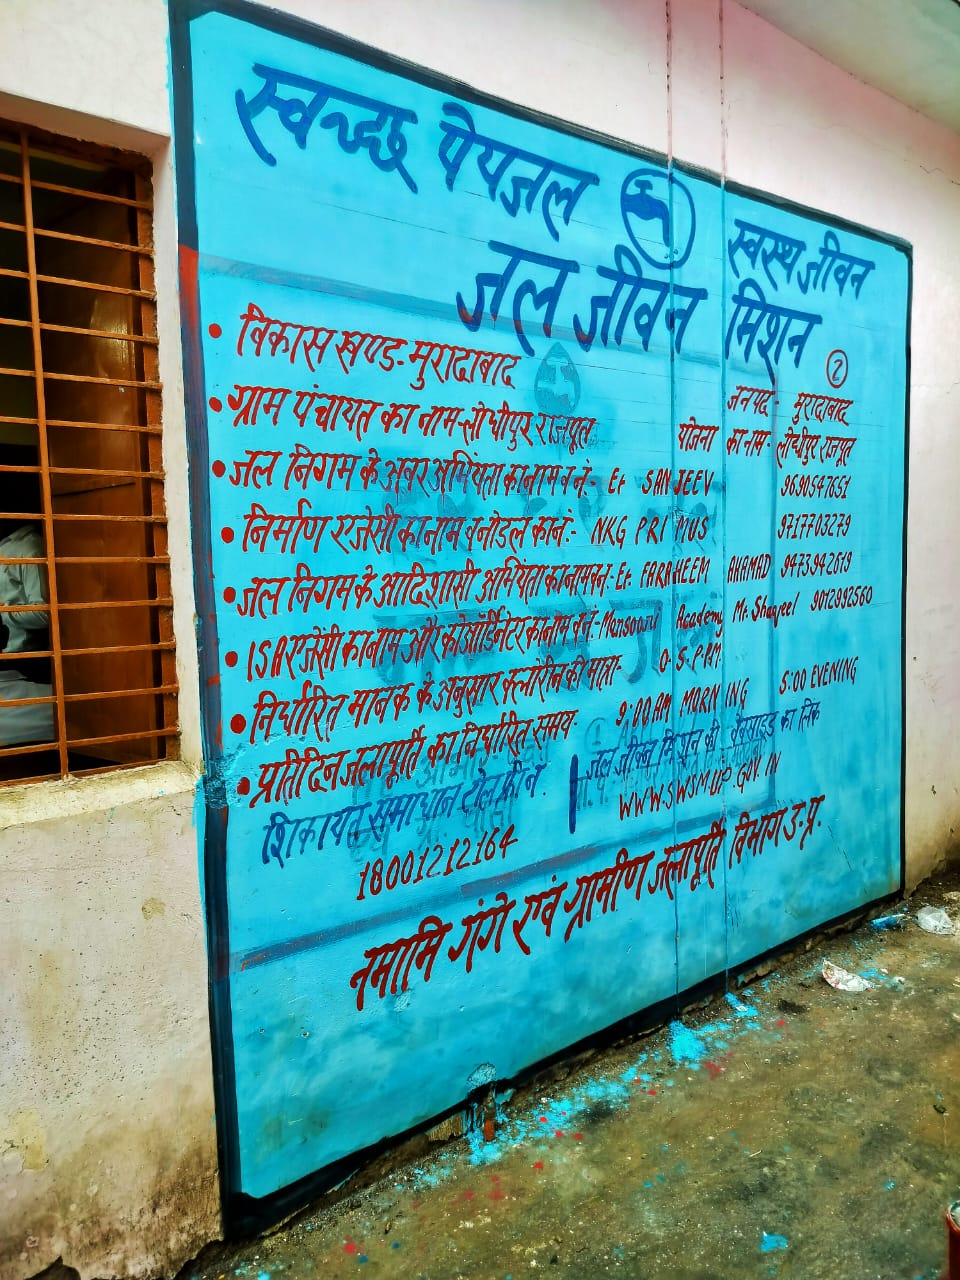 स्वच्छ पेयजल स्वस्थ जीवन
जल जीवन मिशन
2
• विकास खण्ड- मुरादाबाद जनपद- मुरादाबाद
• ग्राम पंचायत का नाम- लोधीपुर राजपूत योजना का नाम- लोधीपुर राजपूत
• जल निगम के अवर अभियंता का नाम व नं:- Er SANJEEV 9690547651
• निर्माण एजेंसी का नाम व नोडल का नं:- NKG PRIMUS 9717703279
• जल निगम के आदिशासी अभियंता का नाम व न:- Er. FARAHEEM AHAMAD 9473942619
• ISA एजेंसी का नाम और कोऑर्डिनेटर का नाम व नं:- Academy Mr. Shaqeel 9012992560
• निर्धारित मानक के अनुसार क्लोरीन की मात्रा- 0.5.P.P.M.
• प्रतिदिन जलापूर्ति का निर्धारित समय- 9:00 AM MORNING 5:00 EVENING
शिकायत समाधान टोल फ्री नं. जल जीवन मिशन की वैबसाइड का लिंक
18001212164 WWW.SWSM.UP.GOV.IN
नमामि गंगे एवं ग्रामीण जलापूर्ति विभाग उ.प्र.